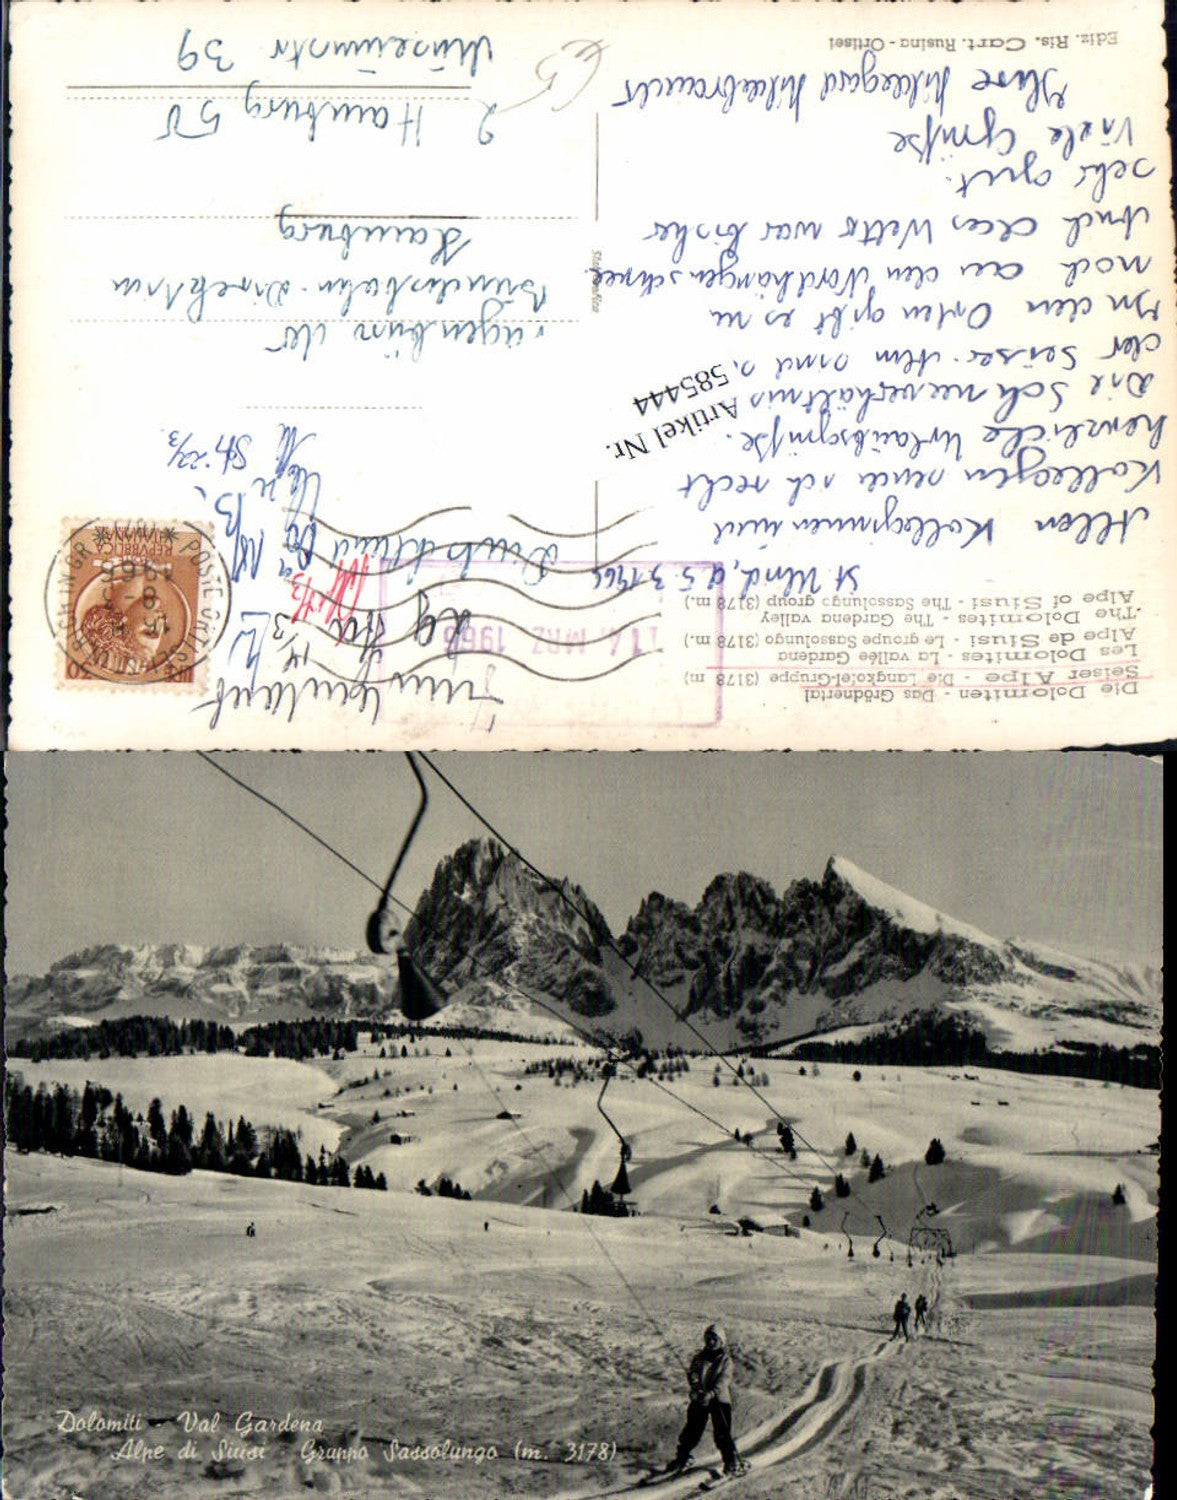 Die Dolomiten - Das Grödnertal
Seiser Alpe - Die Langkofel-Gruppe (3178 m)
Les Dolomites - La vallée Gardena
Alpe de Siusi - Le groupe Sassolungo (3178 m.)
The Dolomites - The Gardena valley
Alpe of Siusi - The Sassolungo group (3178 m.)
St. Ulrich, d. 5.3.1966
Allen Kolleginnen und
Kollegen sende ich recht
herzliche Urlaubsgrüße.
Die Schneeverhältnisse
der Seiser-Alm sind
In den Orten gibt es nu
noch an den Nordhängen Schnee.
Auch das Wetter war bisher
sehr gut.
Viele Grüße
Ihre Hildegard Hildebrandt
Ediz. Ris. Cart. Rusina - Ortisei
Artikel Nr. 585444
14. MRZ. 1966
POSTE
REPUBBLICA
ITALIANA
30
Deutschland
Bundesbahn-Direktion
Hamburg
2 Hamburg 50
Museumstr 39
Dolomiti - Val Gardena
Alpe di Siusi - Gruppo Sassolungo (m. 3178)